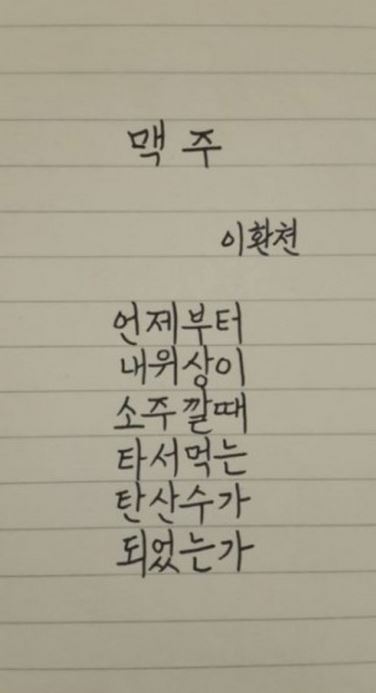 맥 주
이환천
언제부터
내위상이
소주깔때
타서먹는
탄산수가
되었는가